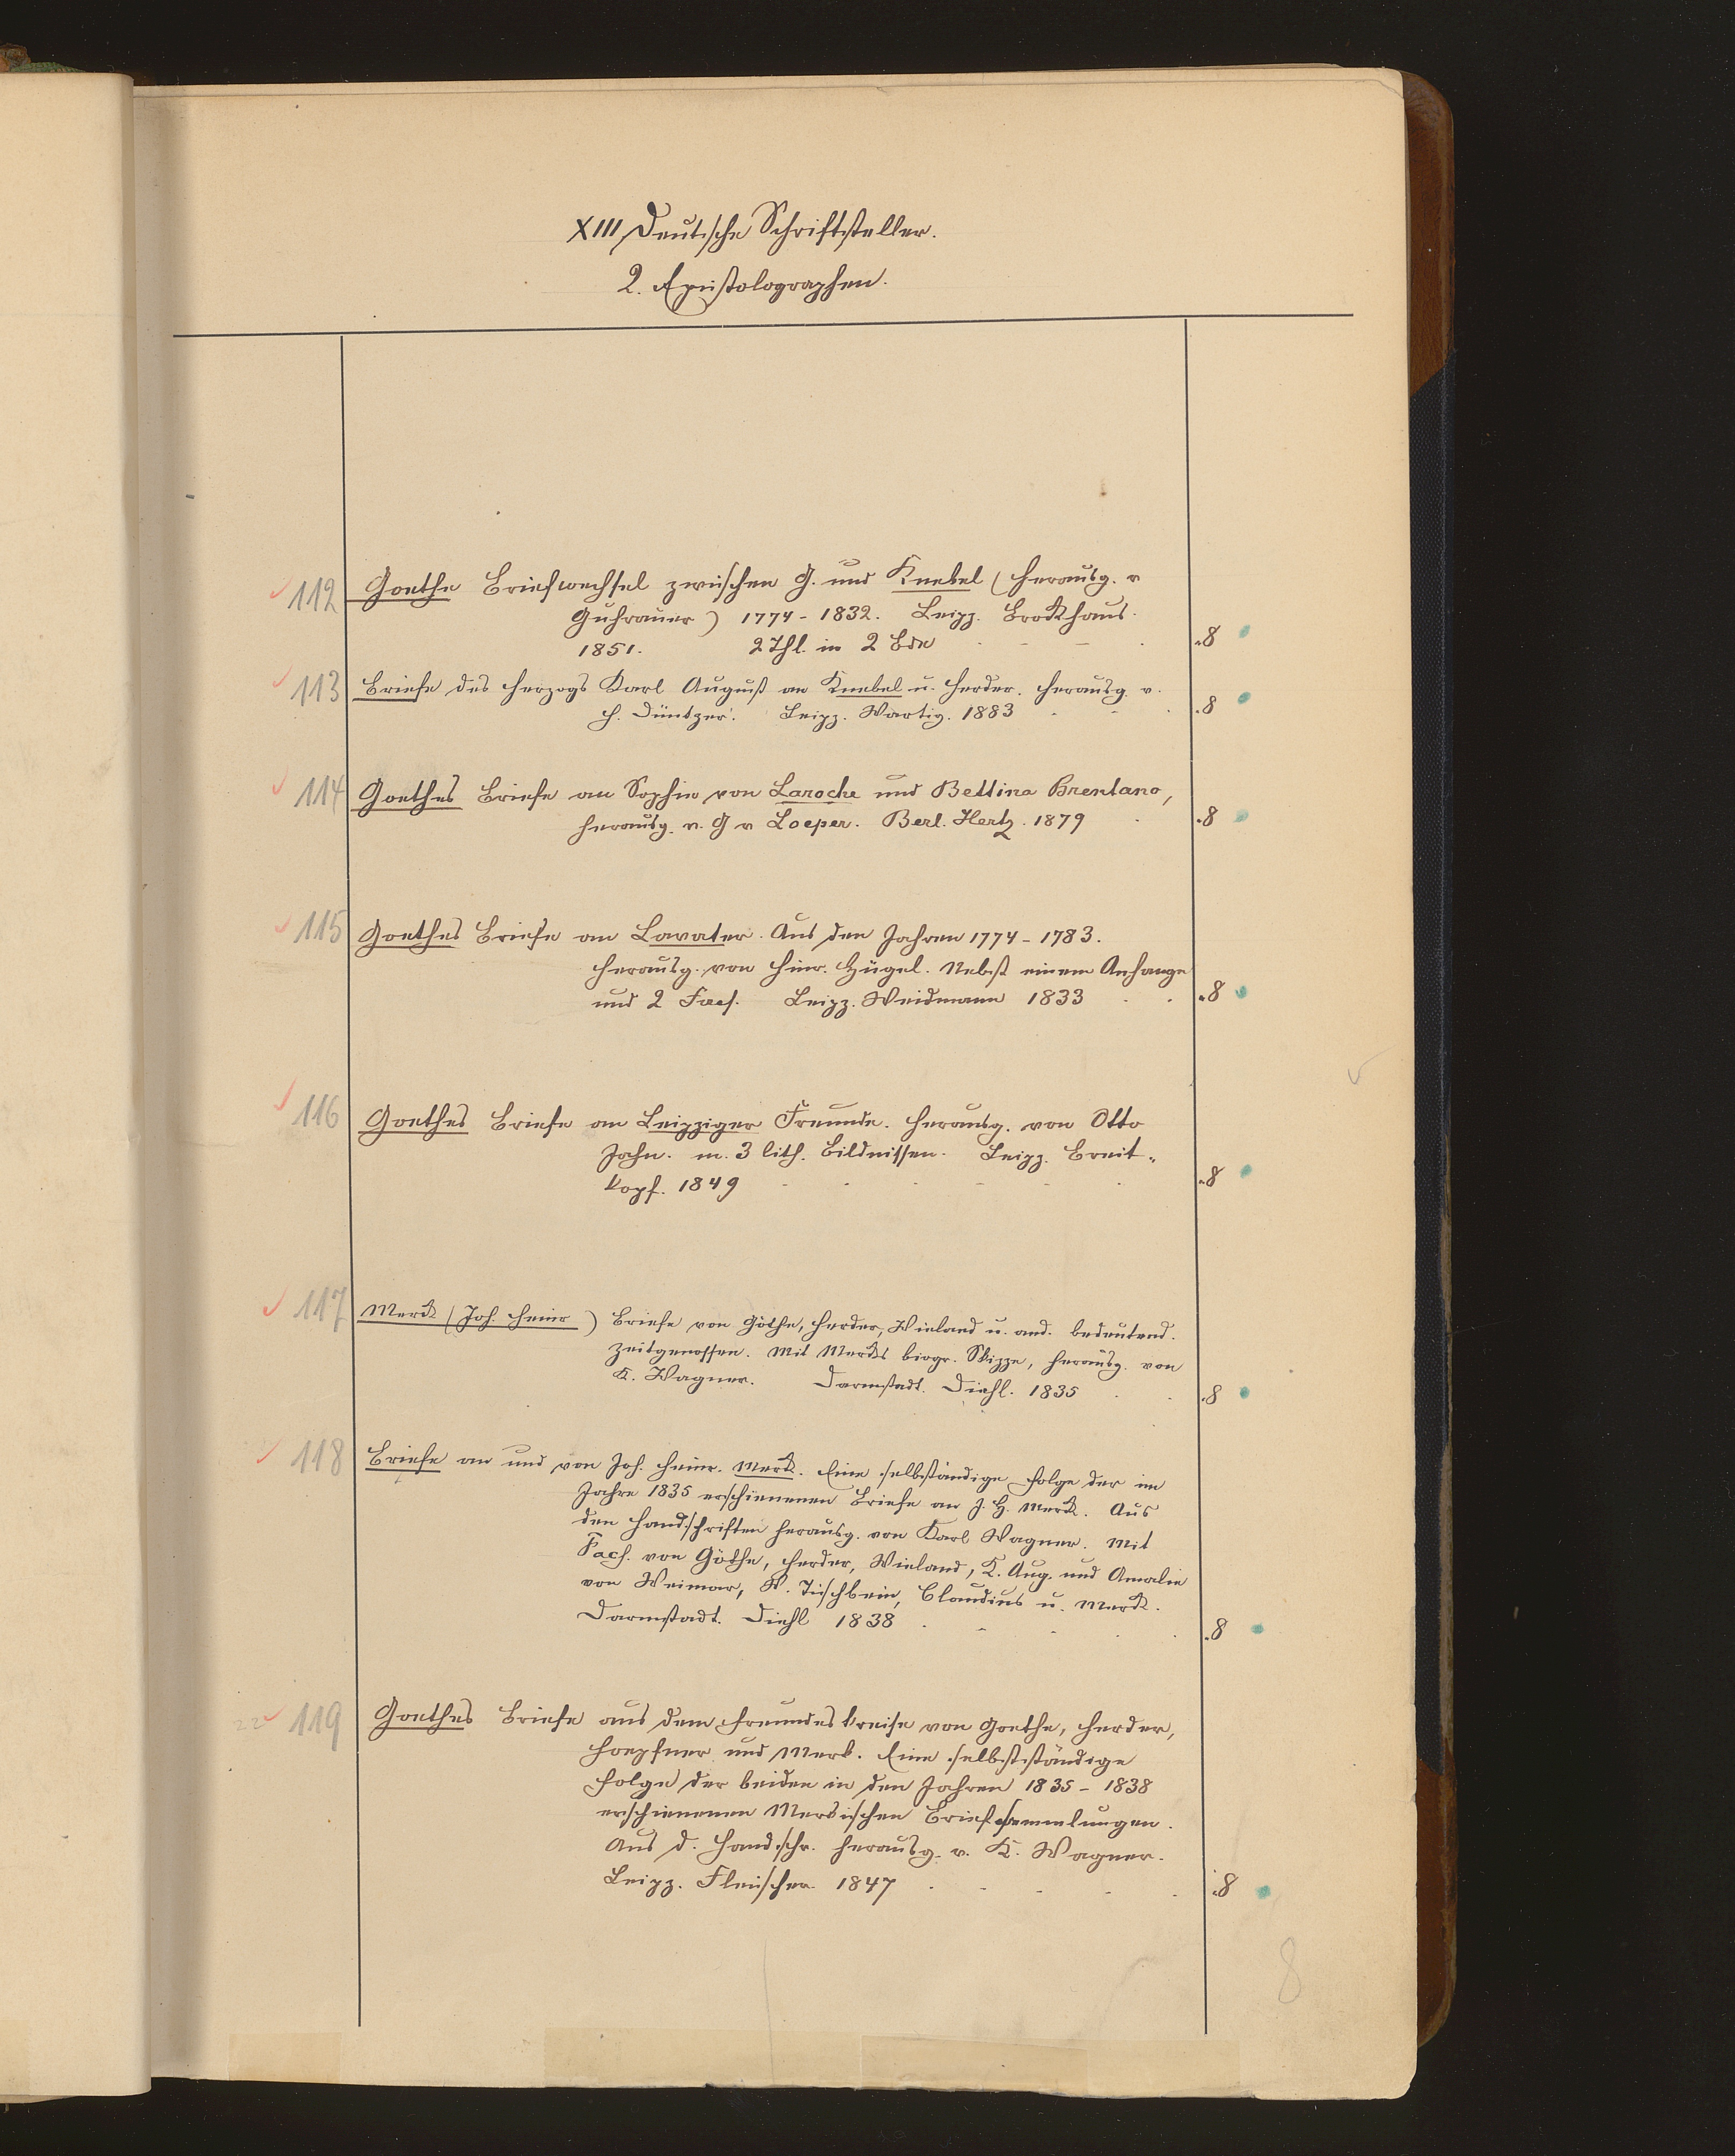 XIII Deutsche Schriftsteller.
2. Epistolographen.
112 Goethe Briefwechsel zwischen G. und Knebel (herausg. v
Guhrauer) 1774-1832. Leipz. Brockhaus.
1851. 2 Thl. in 2 Bde .8
113 Briefe des Herzogs Karl August an Knebel u. Herder. herausg. v.
H. Düntzer. Leipz. Wartig. 1883 .8
114 Goethes Briefe an Sophie von Laroche und Bettina Brentano,
herausg. v. G v Loeper. Berl. Hertz. 1879 .8
115 Goethes Briefe an Lavater. Aus den Jahren 1774-1783.
herausg. von Hinr. Hirzel. Nebst einem Anhange
und 2 Facs. Leipz. Weidmann 1833 .8
116 Goethes Briefe an Leipziger Freunde. herausg. von Otto
Jahn. m. 3 lith. Bildnissen. Leipz. Breit-
kopf. 1849 .8
117 Merck (Joh. Heinr) Briefe von Göthe, Herder, Wieland u. and. bedeutend.
Zeitgenossen. Mit Mercks biogr. Skizze, herausg. von
K. Wagner. Darmstadt. Diehl. 1835 .8
118 Briefe an und von Joh. Heinr. Merck. Eine selbständige Folge der im
Jahre 1835 erschienenen Briefe an J. H. Merck. Aus
den Handschriften herausg. von Karl Wagner. Mit
Facs. von Göthe, Herder, Wieland, K. Aug. und Amalie
von Weimar, W. Tischbein, Claudius u. Merck.
Darmstadt. Diehl 1838 .8
119 Goethes Briefe aus dem Freundeskreise von Goethe, Herder,
Hoepfner und Merk. Eine selbstständige
Folge der beiden in den Jahren 1835-1838
erschienenen Merkischen Briefsammlungen.
Aus d. Handschr. herausg. v. K. Wagner.
Leipz. Fleischer 1847 .8
8